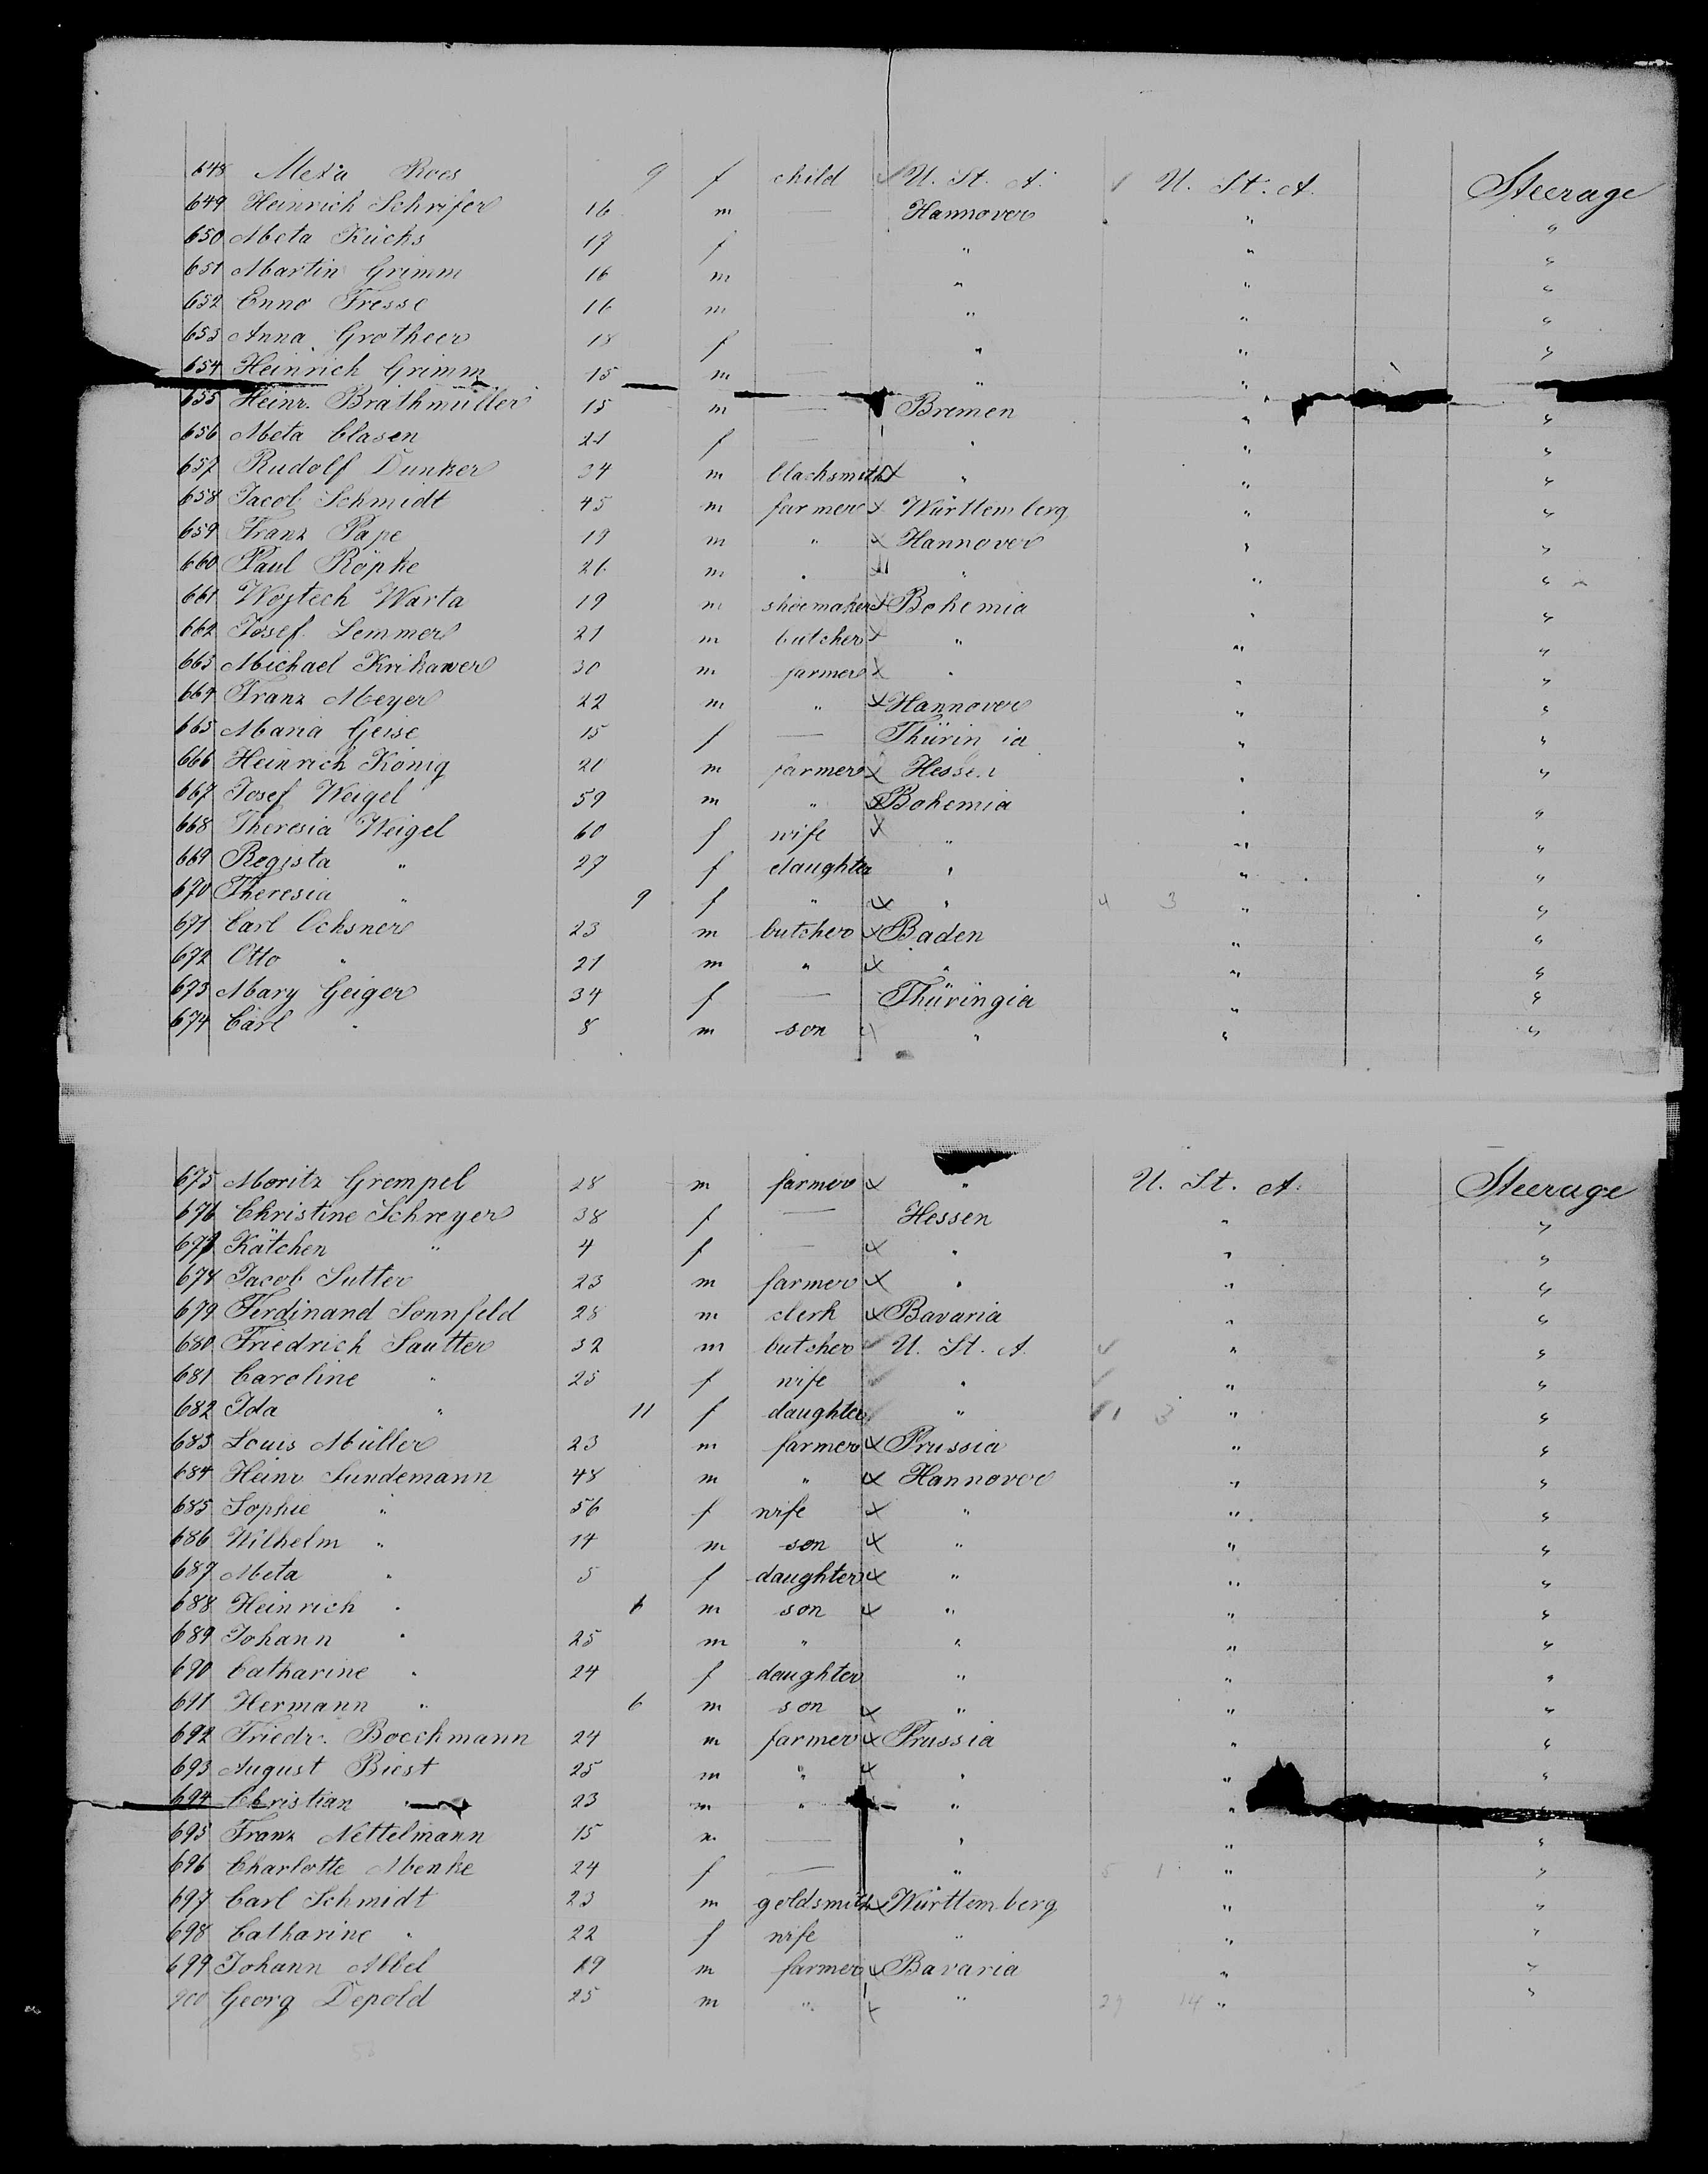 648 Meta Roes 9 f child U. St. A. U. St. A. Steerage
649 Heinrich Schrifer 16 m — Hannover " "
650 Meta Kücks 17 f " " "
651 Martin Grimm 16 m — " " "
652 Enno Fresse 16 m — " " "
653 Anna Grotheer 18 f — " " "
654 Heinrich Grimm 15 m — " " "
655 Heinr. Brathmüller 15 m — Bremen " "
656 Meta Clasen 21 f — " " "
657 Rudolf Dunker 34 m blacksmith " " "
658 Jacob Schmidt 45 m farmer Württemberg " "
659 Franz Pape 19 m " Hannover " "
660 Paul Röpke 21 m " " " "
661 Wojtech Warta 19 m shoemaker Bohemia " "
662 Josef Lemmer 21 m butcher " " "
663 Michael Krikawer 30 m farmer " " "
664 Franz Meyer 22 m " Hannover " "
665 Maria Geise 15 f — Thürin ia " "
666 Heinrich König 21 m farmer Hessen " "
667 Josef Weigel 59 m " Bohemia " "
668 Theresia Weigel 60 f wife " " "
669 Regista " 27 f daughter " " "
670 Theresia " 9 f " " 4 3 " "
671 Carl Ochsner 23 m butcher Baden " "
672 Otto " 21 m " " " "
673 Mary Geiger 34 f — Thüringia " "
674 Carl " 8 m son " " "
675 Moritz Grempel 28 m farmer " U. St. A. Steerage
676 Christine Schreyer 38 f — Hessen " "
677 Kätchen " 4 f — " " "
678 Jacob Sutter 23 m farmer " " "
679 Ferdinand Sonnfeld 28 m clerk Bavaria " "
680 Friedrich Sautter 32 m butcher U. St. A. " "
681 Caroline " 25 f wife " " "
682 Ida " 11 f daughter " 1 3 " "
683 Louis Müller 23 m farmer Prussia " "
684 Heinr. Sundemann 48 m " Hannover " "
685 Sophie " 56 f wife " " "
686 Wilhelm " 14 m son " " "
687 Meta " 5 f daughter " " "
688 Heinrich " m son " " "
689 Johann " 25 m " " " "
690 Catharine " 24 f daughter " " "
691 Hermann " 6 m son " " "
692 Friedr. Boeckmann 24 m farmer Prussia " "
693 August Biest 25 m " " " "
694 Christian " 23 m " " " "
695 Franz Nettelmann 15 m — " " "
696 Charlotte Menke 24 f — " 5 1 " "
697 Carl Schmidt 23 m goldsmith Württemberg " "
698 Catharine " 22 f wife " " "
699 Johann Abel 19 m farmer Bavaria " "
700 Georg Depold 25 m " " 29 14 " "